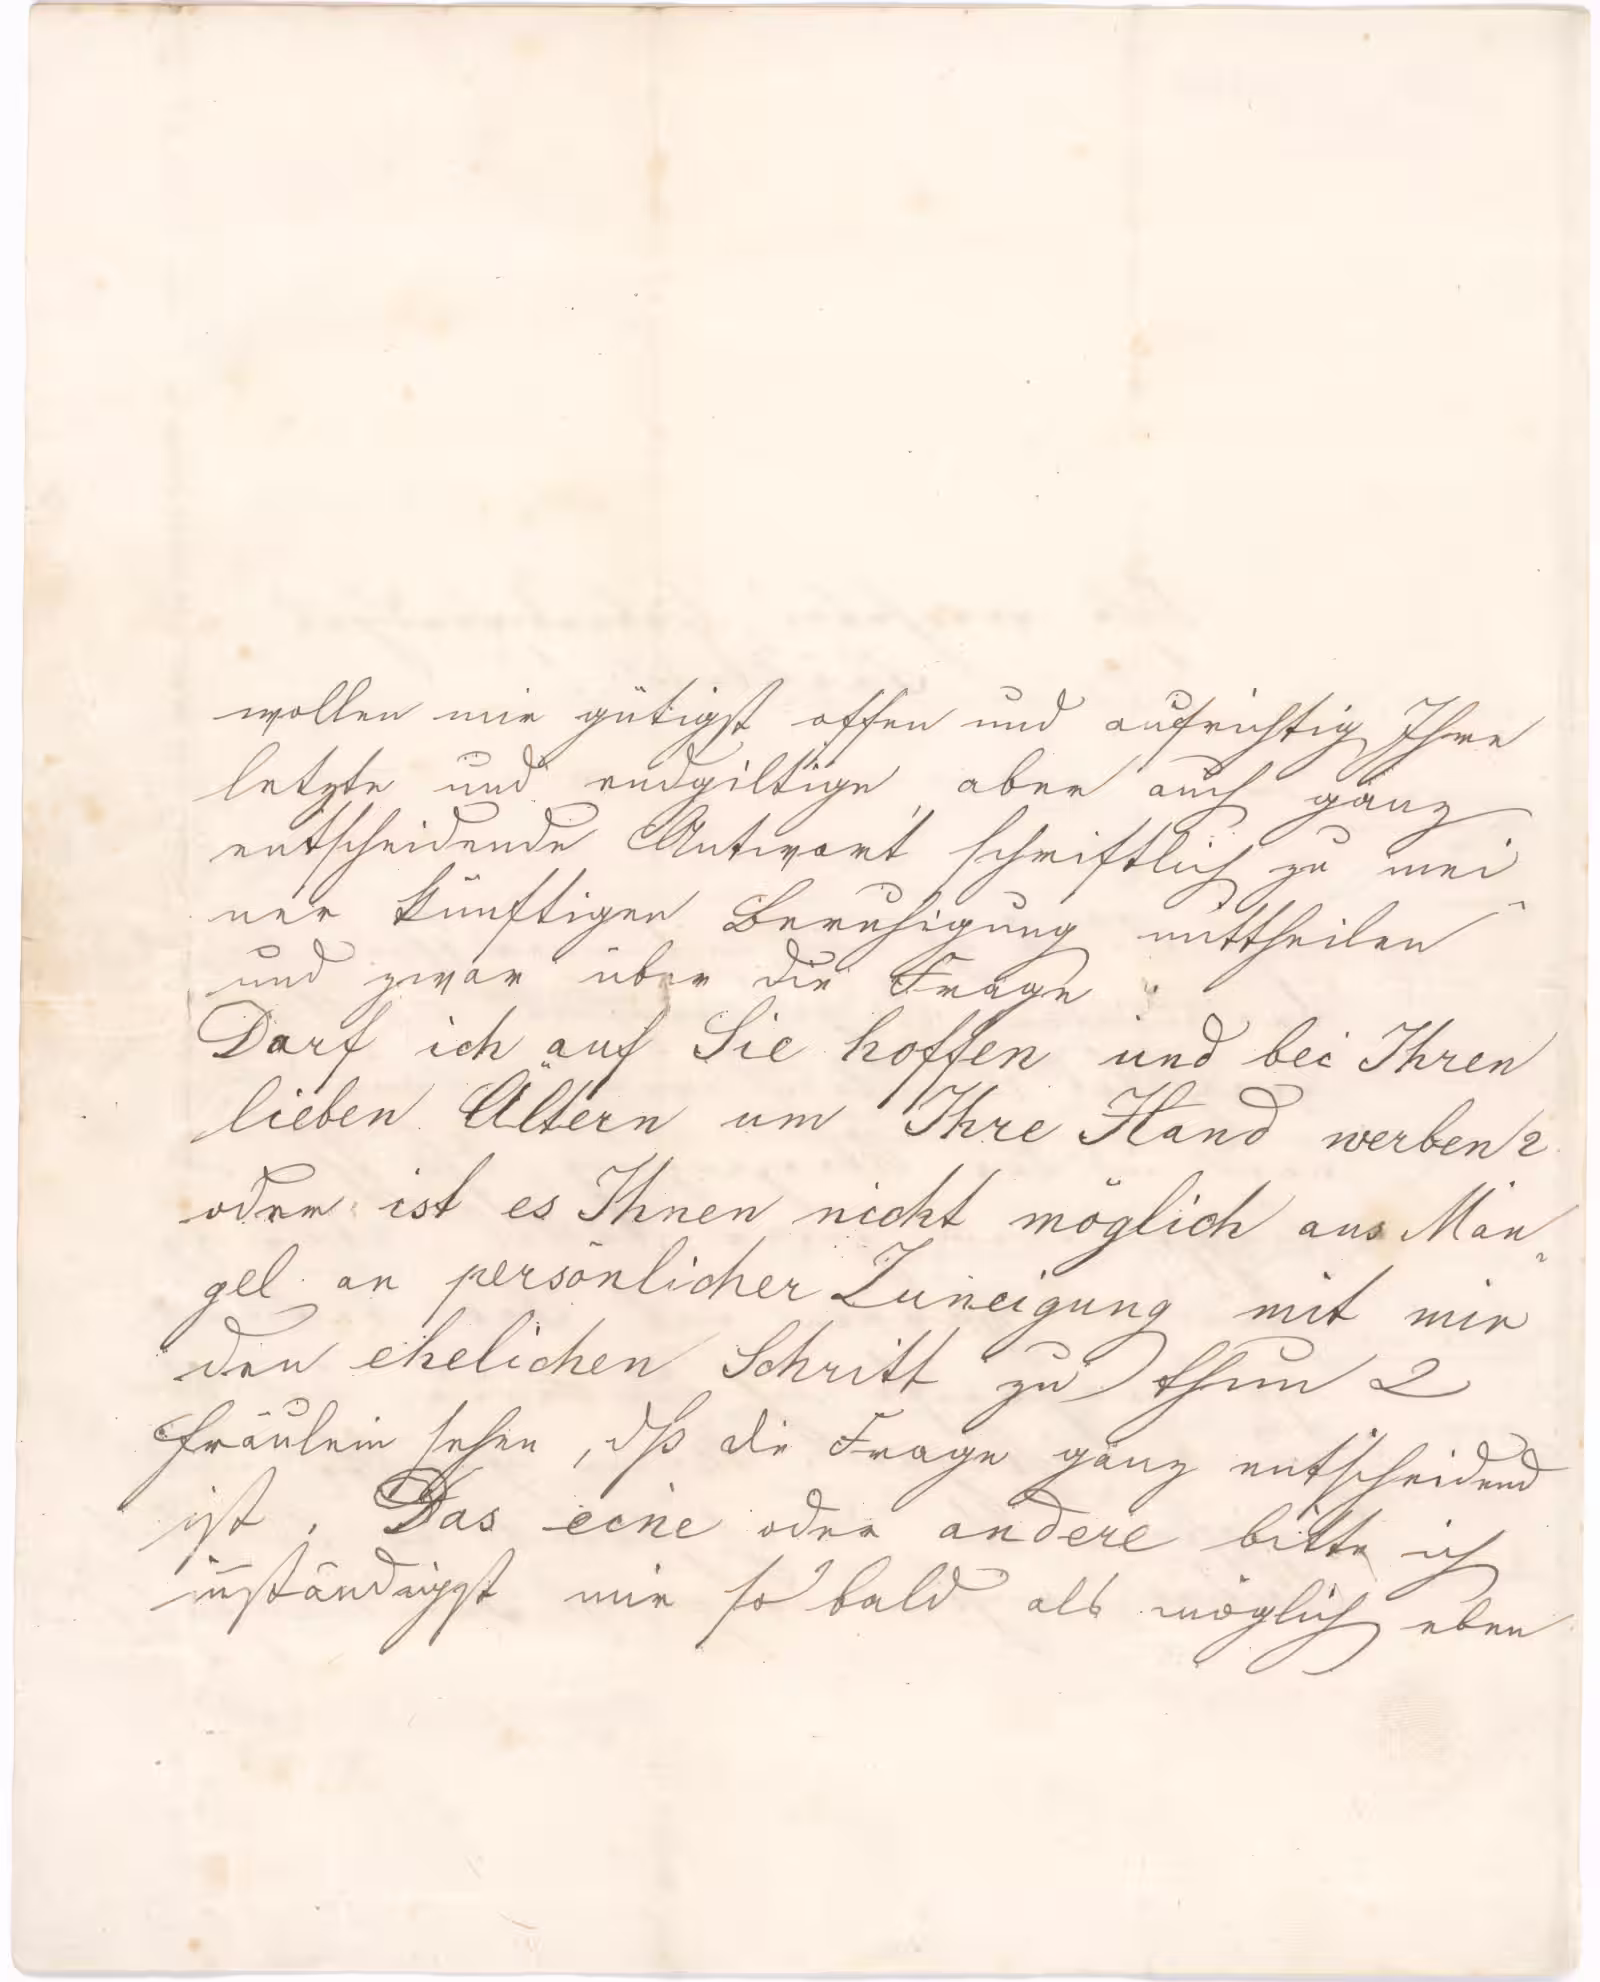 wollen mir gütigst offen und aufrichtig Ihre
letzte und endgiltige, aber auch ganz
entscheidende Antwort schriftlich zu mei-
ner künftigen Beruhigung mittheilen
und zwar über die Frage:
Darf ich auf Sie hoffen und bei Ihren
lieben Ältern um Ihre Hand werben?
oder ist es Ihnen nicht möglich aus Man-
gel an persönlicher Zuneigung mit mir
den ehelichen Schritt zu thun?
Fräulein sehen, dß die Frage ganz entscheidend
ist. Das eine oder andere bitte ich
inständigst mir so bald als möglich eben